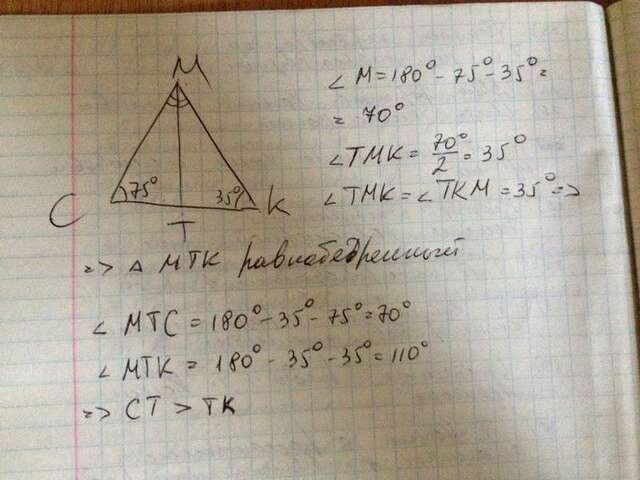 M
∠ M = 180° - 75° - 35° =
= 70°
∠TMK = 70°/2 = 35°
∠TMK = ∠TKM = 35° =>
75°
35°
C
T
K
=> △ MTK равнобедренный
∠ MTC = 180° - 35° - 75° = 70°
∠ MTK = 180° - 35° - 35° = 110°
=> CT > TK